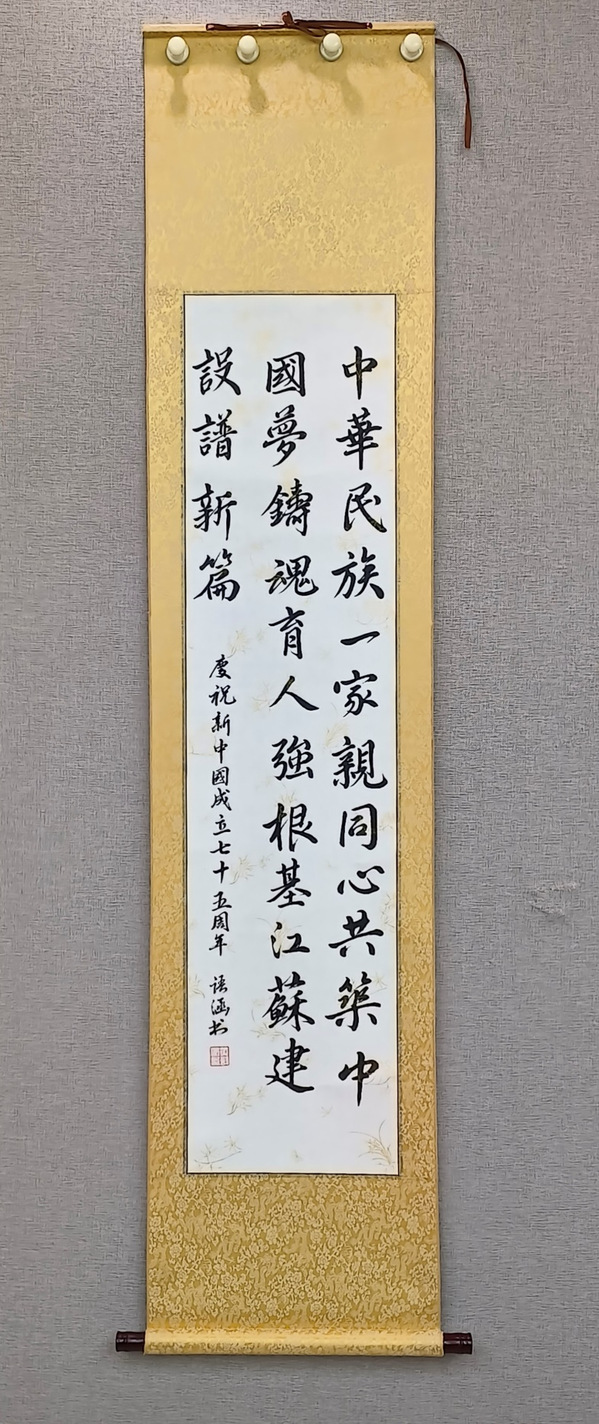 中華民族一家親同心共築中
國夢鑄魂育人強根基江蘇建
設譜新篇
慶祝新中國成立七十五周年 語涵书